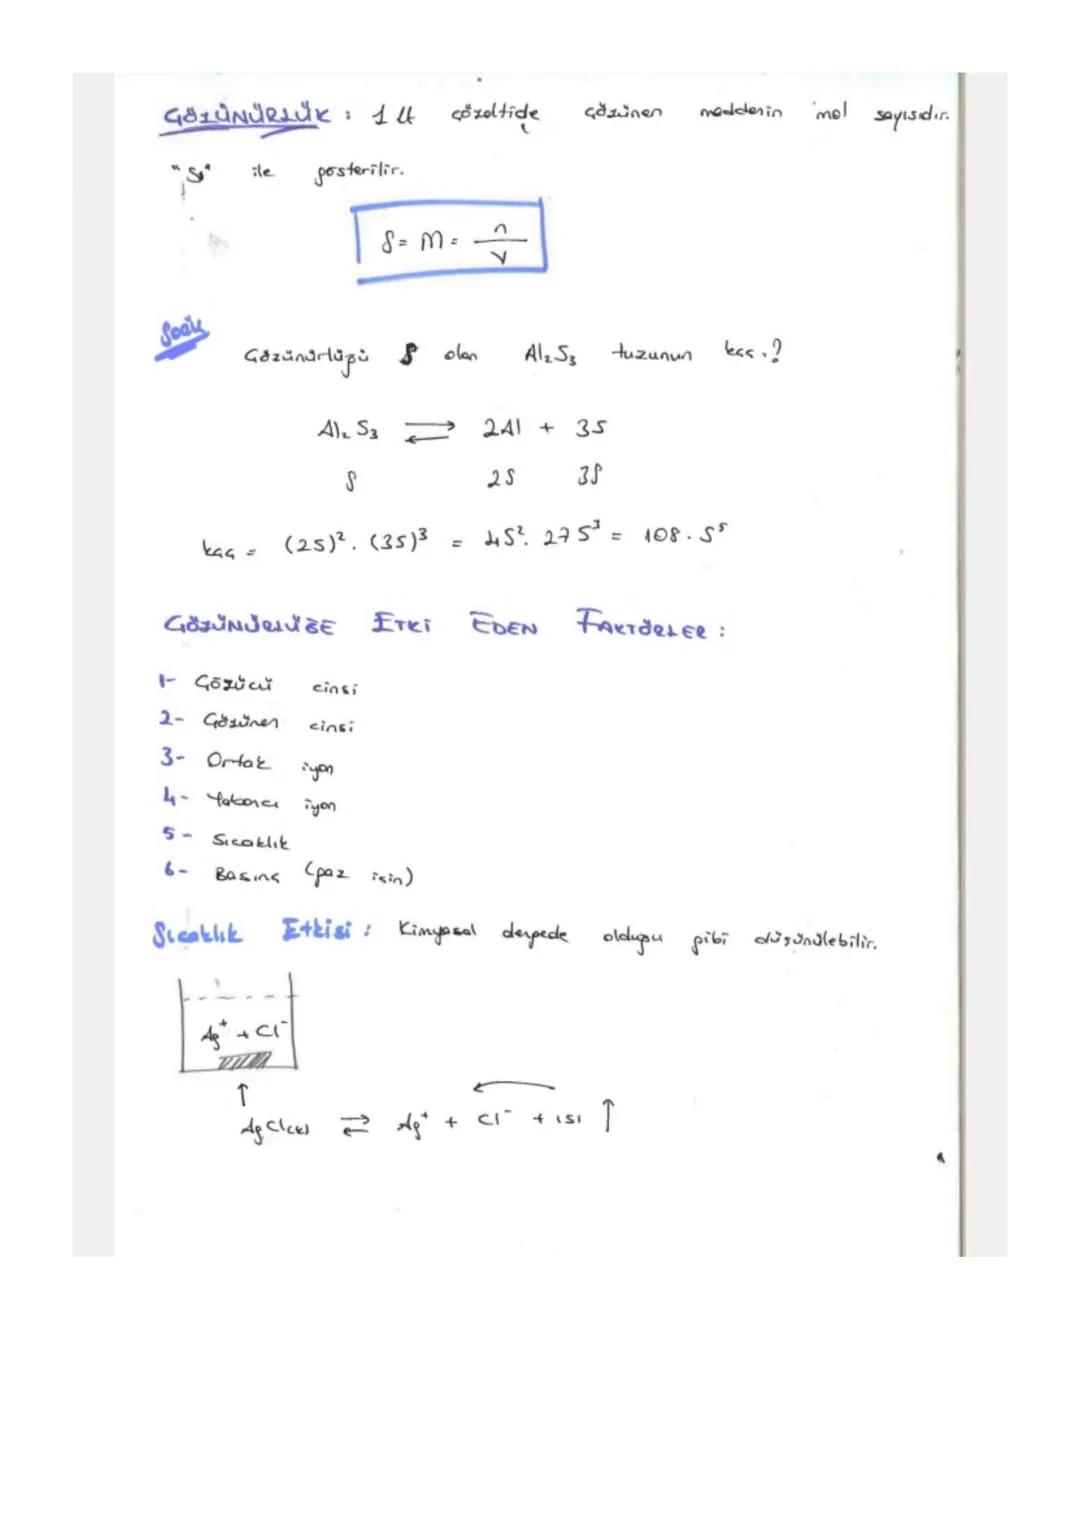 ÇÖZÜNÜRLÜK : 1 Lt çözeltide çözünen maddenin mol sayısıdır.
"S" ile gösterilir.
S = M = n / V
Soru
Çözünürlüğü S olan Al₂S₃ tuzunun kçç ?
Al₂S₃ ⇄ 2Al + 3S
S 2S 3S
kçç = (2S)² . (3S)³ = 4S² . 27S³ = 108 . S⁵
ÇÖZÜNÜRLÜĞE ETKİ EDEN FAKTÖRLER :
1- Çözücü cinsi
2- Çözünen cinsi
3- Ortak iyon
4- Yabancı iyon
5- Sıcaklık
6- Basınç (gaz için)
Sıcaklık Etkisi : Kimyasal dengede olduğu gibi düşünülebilir.
Ag⁺ + Cl⁻
↑
AgCl(k) ⇄ Ag⁺ + Cl⁻ + ısı ↑